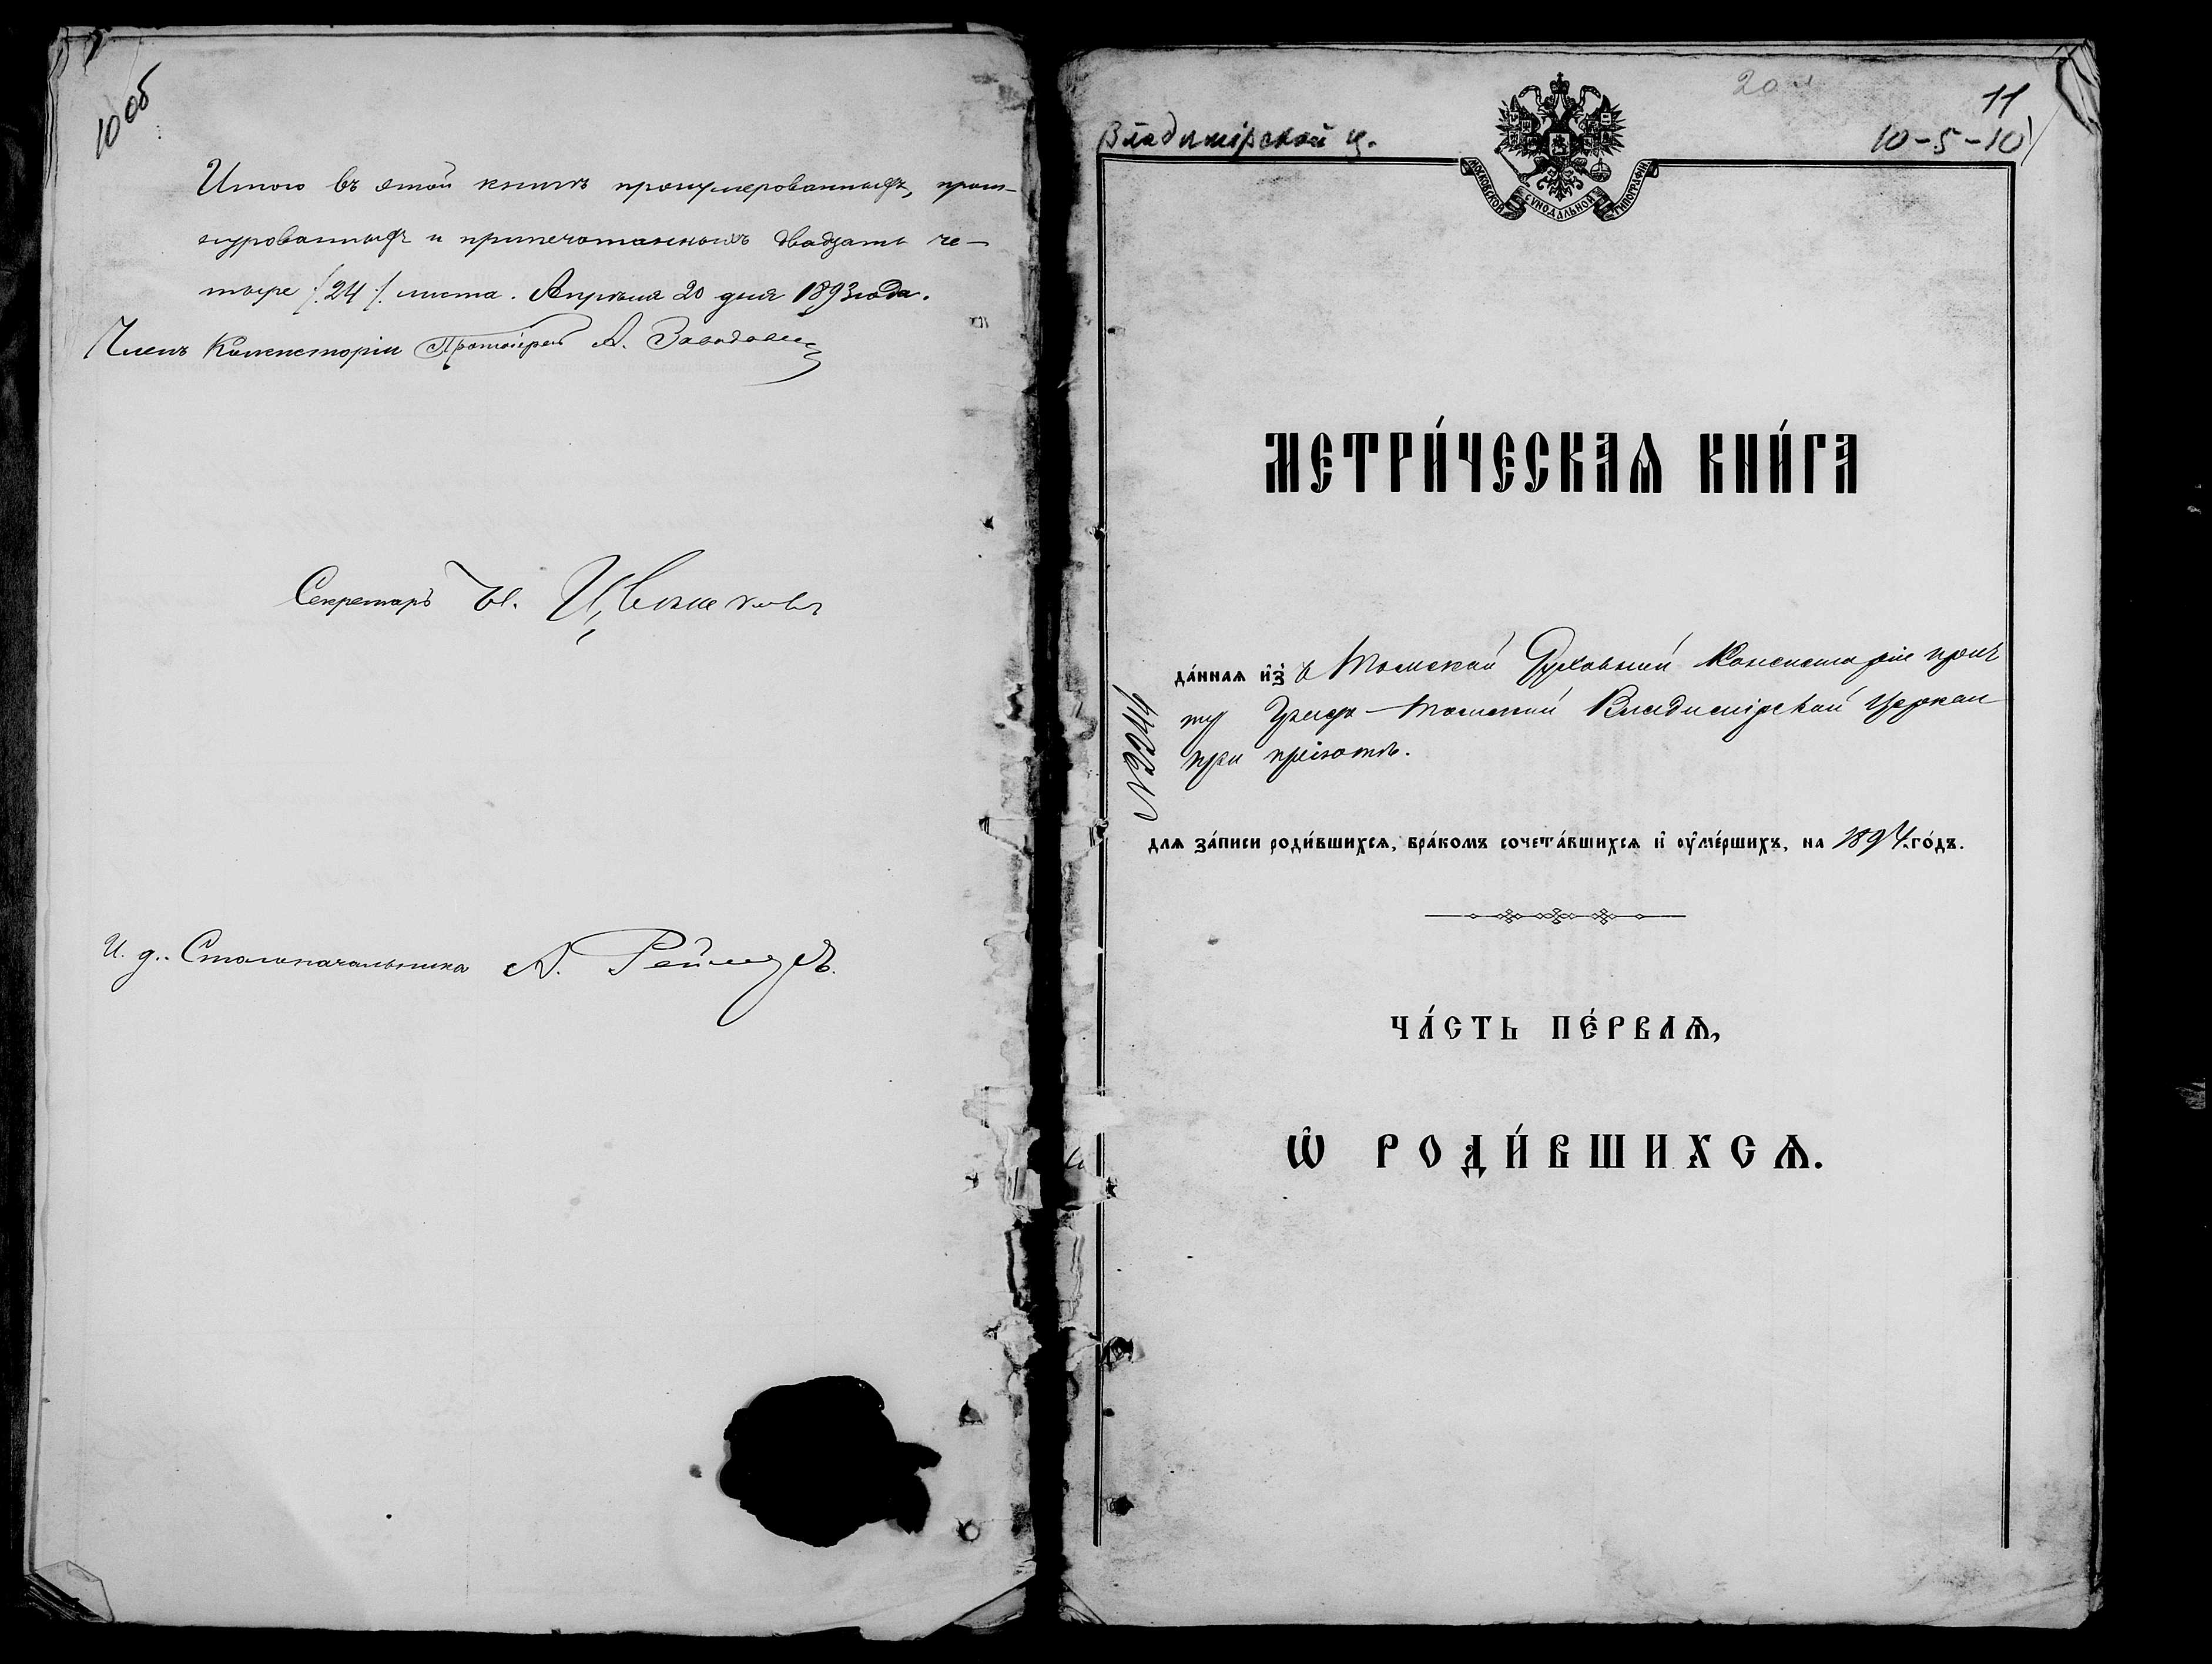 10 об
Итого въ этой книгѣ пронумерованныхъ, прош-
нурованныхъ и припечатанныхъ двадцать че-
тыре /. 24 /. листа. Апрѣля 20 дня 1893 года.
Членъ Консисторіи Протоіерей А. Заводовскі
Секретарь
И. д. Столоначальника А.
20
11
Владимірской ц.
10-5-10
МОСКОВСКОЙ СѴНОДАЛЬНОЙ ТИПОГРАФІИ
МЕТРИ́ЧЕСКАѦ КНИ́ГА
да́ннаѧ и҆з̾ Томской Духовной Консисторіи прич
ту Градо-Томской Владимірской церкви
при пріютѣ.
№ 3244
длѧ за́писи роди́вшихсѧ, бра́комъ сочета́вшихсѧ и҆ ᲂу҆ме́ршихъ, на 1894 го́дъ.
ЧА́СТЬ ПЕ́РВАѦ,
Ѡ҆ РОДИ́ВШИХСѦ.